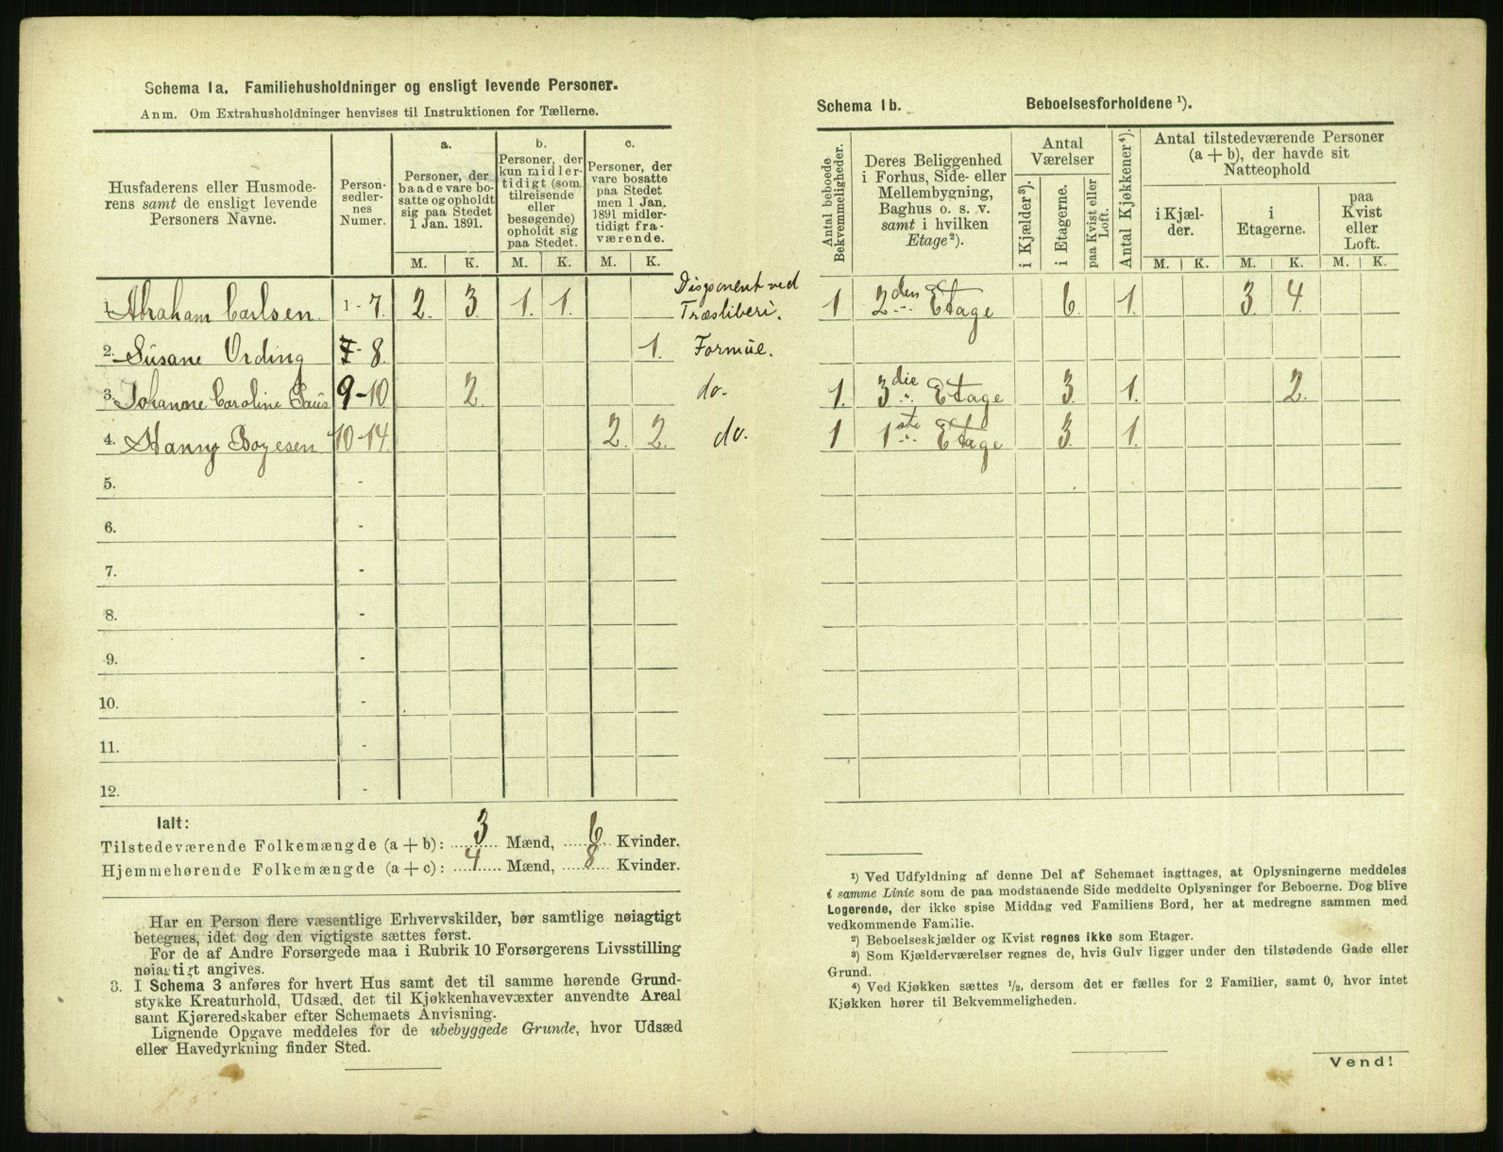 Schema 1a. Familiehusholdninger og ensligt levende Personer.
Anm. Om Extrahusholdninger henvises til Instruktionen for Tællerne.
Husfaderens eller Husmode-
rens samt de ensligt levende
Personers Navne.
Person-
sedler-
nes
Numer.
a.
Personer, der
baade vare bo-
satte og opholdt
sig paa Stedet
1 Jan. 1891.
b.
Personer, der
kun midler-
tidigt (som
tilreisende
eller
besøgende)
opholdt sig
paa Stedet.
c.
Personer, der
vare bosatte
paa Stedet
men 1 Jan.
1891 midler-
tidigt fra-
værende.
M. K. M. K. M. K.
1. Abraham Carlsen. 1-7. 2. 3. 1. 1. Disponent ved Træsliberi.
2. Susane Ording 7-8. 1. Formue.
3. Johanne Caroline Paus 9-10 2. do.
4. Hanny Boyesen 10-14. 2. 2. do.
5. -
6. -
7. -
8. -
9. -
10. -
11. -
12. -
Ialt:
Tilstedeværende Folkemængde (a + b): 3 Mænd, 6 Kvinder.
Hjemmehørende Folkemængde (a + c): 4 Mænd, 8 Kvinder.
Har en Person flere væsentlige Erhvervskilder, bør samtlige nøiagtigt
betegnes, idet dog den vigtigste sættes først.
For de af Andre Forsørgede maa i Rubrik 10 Forsørgerens Livsstilling
nøiagtigt angives.
3. I Schema 3 anføres for hvert Hus samt det til samme hørende Grund-
stykke Kreaturhold, Udsæd, det til Kjøkkenhavevæxter anvendte Areal
samt Kjøreredskaber efter Schemaets Anvisning.
Lignende Opgave meddeles for de ubebyggede Grunde, hvor Udsæd
eller Havedyrkning finder Sted.
Schema 1b. Beboelsesforholdene ¹).
Antal beboede
Bekvemmeligheder.
Deres Beliggenhed
i Forhus, Side- eller
Mellembygning,
Baghus o. s. v.
samt i hvilken
Etage²).
Antal
Værelser
i Kjælder³).
i Etagerne.
paa Kvist eller
Loft.
Antal Kjøkkener⁴).
Antal tilstedeværende Personer
(a + b), der havde sit
Natteophold
i Kjæl-
der.
i
Etagerne.
paa
Kvist
eller
Loft.
M. K. M. K. M. K.
1 2den Etage 6. 1. 3. 4.
1. 3die Etage 3. 1. 2.
1 1ste Etage 3. 1.
¹) Ved Udfyldning af denne Del af Schemaet iagttages, at Oplysningerne meddeles
i samme Linie som de paa modstaaende Side meddelte Oplysninger for Beboerne. Dog blive
Logerende, der ikke spise Middag ved Familiens Bord, her at medregne sammen med
vedkommende Familie.
²) Beboelseskjælder og Kvist regnes ikke som Etager.
³) Som Kjælderværelser regnes de, hvis Gulv ligger under den tilstødende Gade eller
Grund.
⁴) Ved Kjøkken sættes ½, dersom det er fælles for 2 Familier, samt 0, hvor intet
Kjøkken hører til Bekvemmeligheden.
Vend!